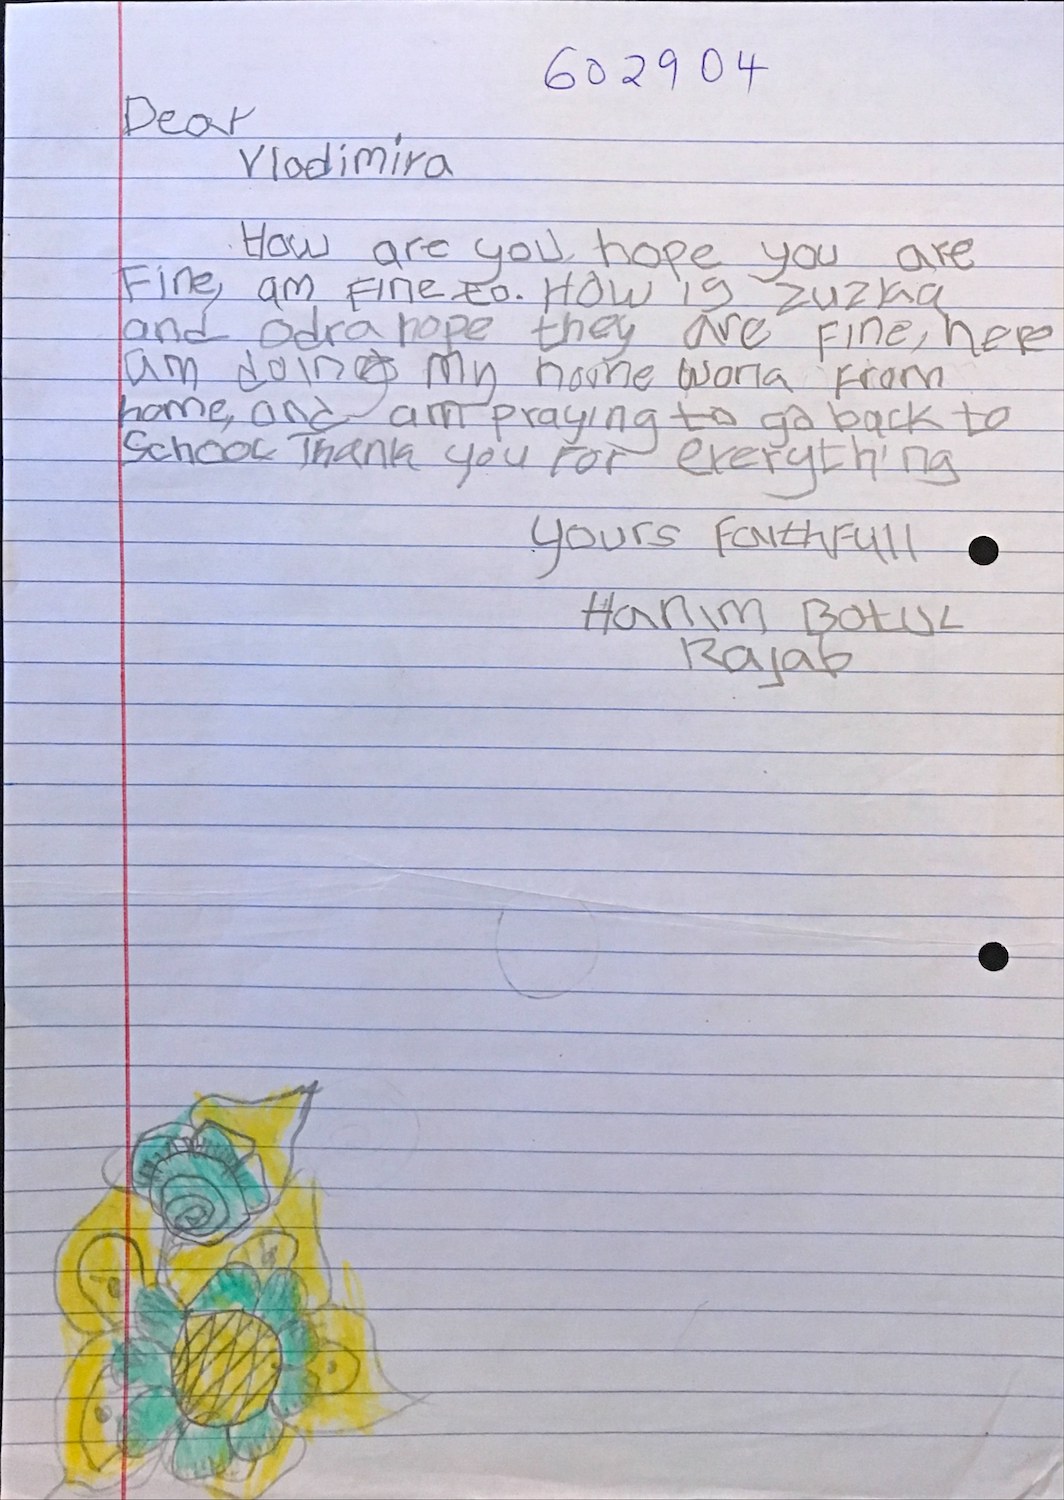 602904
Dear
Vladimira
How are you, hope you are
Fine, am Fine to. How is zuzka
and Odra hope they are Fine, here
am doing my home work From
home, and am praying to go back to
School Thank you For everything
yours Faithfull
Hanim Botul
Rajab